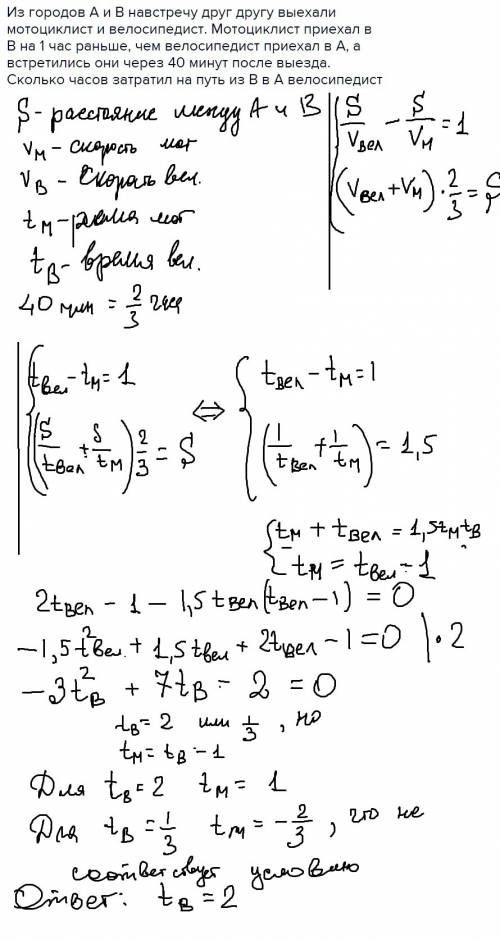 Из городов А и В навстречу друг другу выехали
мотоциклист и велосипедист. Мотоциклист приехал в
В на 1 час раньше, чем велосипедист приехал в А, а
встретились они через 40 минут после выезда.
Сколько часов затратил на путь из В в А велосипедист
S - расстояние между А и В
Vм - скорость мот
VВ - скорость вел.
tм - время мот
tВ - время вел.
40 мин = 2/3 час
{ S/Vвел - S/Vм = 1
(Vвел + Vм) · 2/3 = S
{ tвел - tм = 1
(S/tвел + S/tм) 2/3 = S
⇔ { tвел - tм = 1
(1/tвел + 1/tм) = 1,5
{ tм + tвел = 1,5tмtВ
tм = tвел - 1
2tвел - 1 - 1,5tвел(tвел - 1) = 0
-1,5t²вел + 1,5tвел + 2tвел - 1 = 0 | · 2
-3t²В + 7tВ - 2 = 0
tВ = 2 или 1/3, но
tм = tВ - 1
Для tВ = 2 tм = 1
Для tВ = 1/3 tм = -2/3, что не
соответствует условию
Ответ: tВ = 2